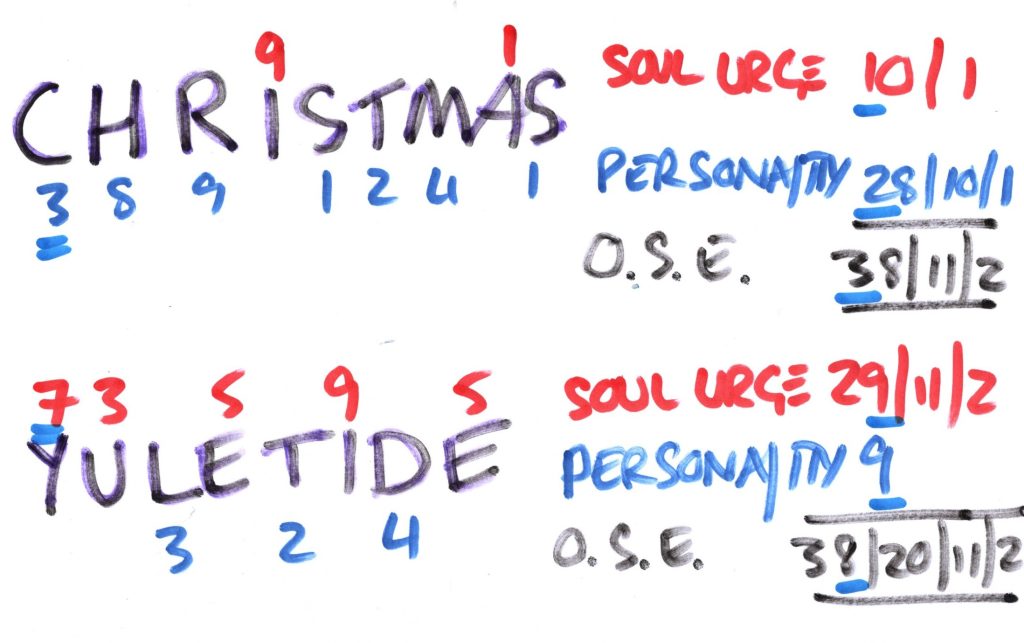 9 1
CHRISTMAS
3 8 9 1 2 4 1
SOUL URGE 10/1
PERSONALITY 28/10/1
O.S.E. 38/11/2
7 3 5 9 5
YULETIDE
3 2 4
SOUL URGE 29/11/2
PERSONALITY 9
O.S.E. 38/20/11/2